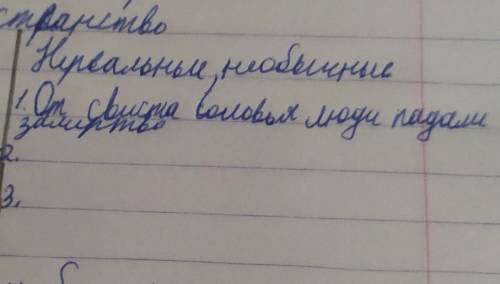 странство
Нереальные, необычные
1. От свиста Соловья люди падали
замертво
2.
3.